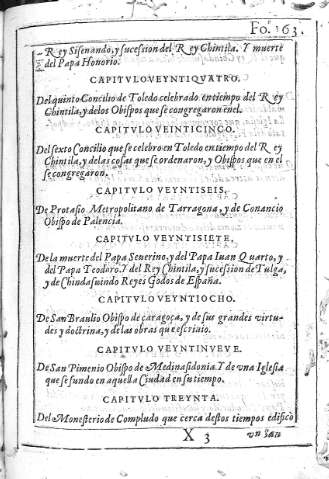 Fo. 163.
Rey Sisenando, y sucesion del Rey Chintila. Y muerte
del Papa Honorio.
CAPITVLO VEYNTIQVATRO.
Del quinto Concilio de Toledo celebrado en tiempo del Rey
Chintila, y de los Obispos que se congregaron en el.
CAPITVLO VEINTICINCO.
Del sexto Concilio que se celebro en Toledo en tiempo del Rey
Chintila, y de las cosas que se ordenaron, y Obispos que en el
se congregaron.
CAPITVLO VEYNTISEIS.
De Protasio Metropolitano de Tarragona, y de Conancio
Obispo de Palencia.
CAPITVLO VEYNTISIETE.
De la muerte del Papa Severino, y del Papa Iuan Quarto, y
del Papa Teodoro. Y del Rey Chintila, y sucesion de Tulga,
y de Chindasuindo Reyes Godos de España.
CAPITVLO VEYNTIOCHO.
De San Braulio Obispo de çaragoça, y de sus grandes virtu-
des y doctrina, y de las obras que escriuio.
CAPITVLO VEYNTINVEVE.
De San Pimenio Obispo de Medinasidonia. Y de vna Iglesia
que se fundo en aquella Ciudad en su tiempo.
CAPITVLO TREYNTA.
Del Monesterio de Compludo que cerca destos tiempos edifico
X 3
vn San